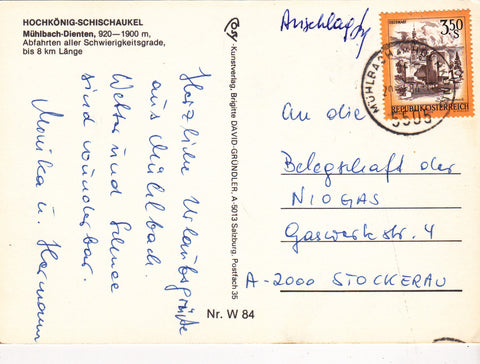 HOCHKÖNIG-SCHISCHAUKEL
Mühlbach-Dienten, 920—1900 m,
Abfahrten aller Schwierigkeitsgrade,
bis 8 km Länge
Herzliche Urlaubsgrüße
aus Mühlbach.
Wetter und Schnee
sind wunderbar.
Monika u. Hermann
-Kunstverlag, Brigitte DAVID-GRÜNDLER, A-5013 Salzburg, Postfach 35
Nr. W 84
3.50
S
REPUBLIK ÖSTERREICH
MÜHLBACH
5505
An die
Belegschaft der
NIOGAS
Gaswerkstr. 4
A-2000 STOCKERAU